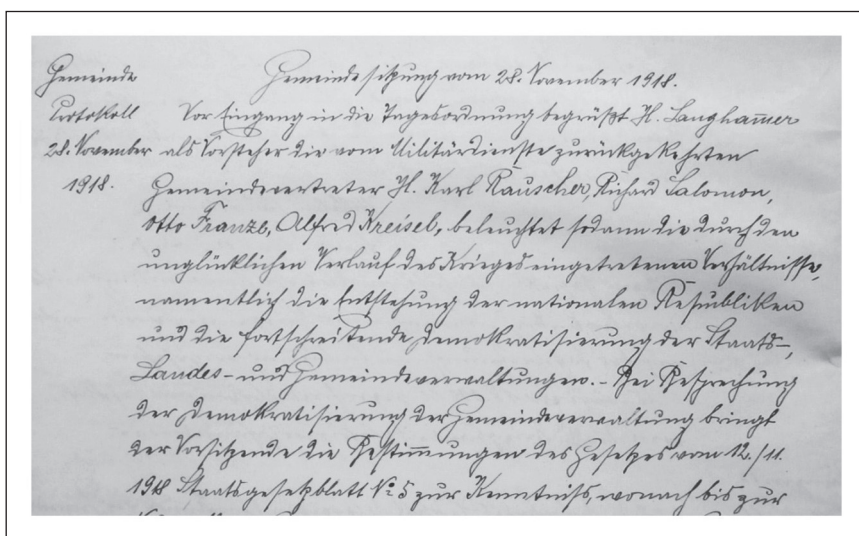 Gemeinde
Protokoll
28. November
1918.
Gemeindesitzung vom 28. November 1918.
Vor Eingang in die Tagesordnung begrüßt H. Langham̅er
als Vorsteher die vom Militärdienste zurückgekehrten
Gemeindevertreter H. Karl Rauscher, Richard Salomon,
Otto Franzl, Alfred Kreisel, beleuchtet sodann die durch den
unglücklichen Verlauf des Krieges eingetretenen Verhältnisse,
namentlich die Entstehung der nationalen Republiken
und die fortschreitende Demokratisierung der Staats-,
Landes- und Gemeindeverwaltungen. - Bei Besprechung
der Demokratisierung der Gemeindeverwaltung bringt
der Vorsitzende die Bestim̅ungen des Gesetzes vom 12./11.
1918 Staatsgesetzblatt No 5 zur Kenntniss, wonach bis zur